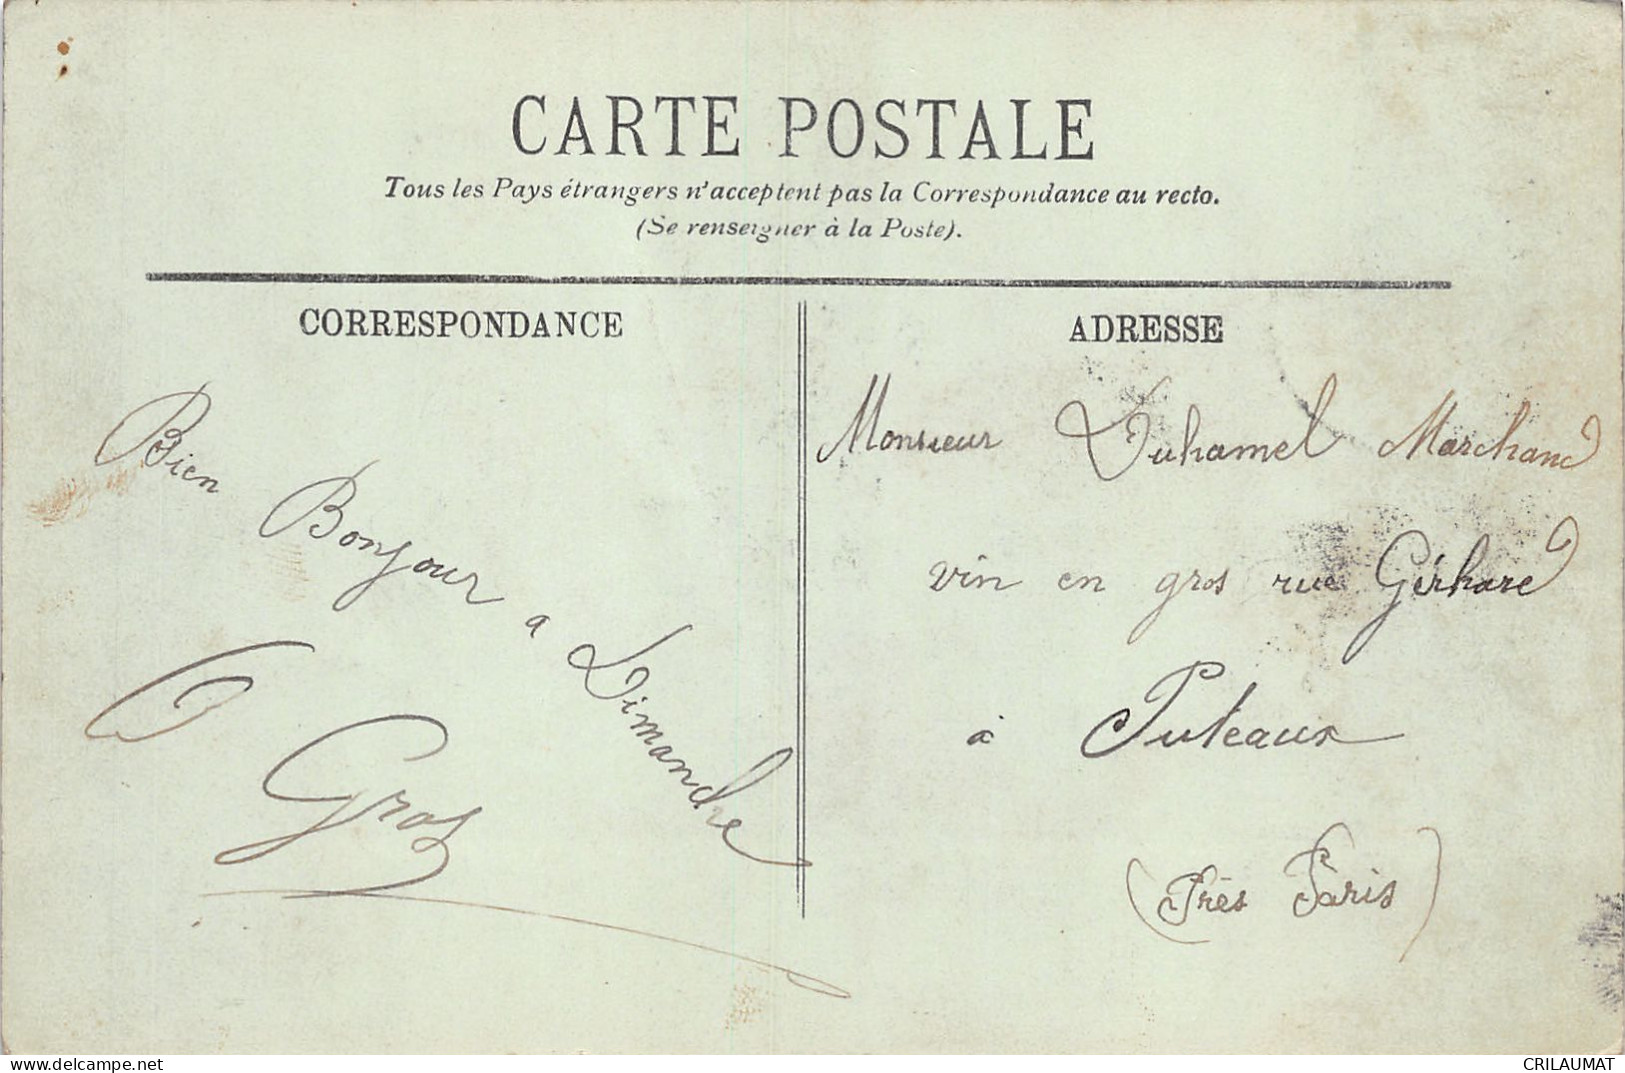 CARTE POSTALE
Tous les Pays étrangers n'acceptent pas la Correspondance au recto.
(Se renseigner à la Poste).
CORRESPONDANCE
Bien Bonjour a Dimanche
Gros
ADRESSE
Monsieur Duhamel Marchand
vin en gros rue Gérhard
à Puteaux
(Près Paris)
www.delcampe.net
CRILAUMAT